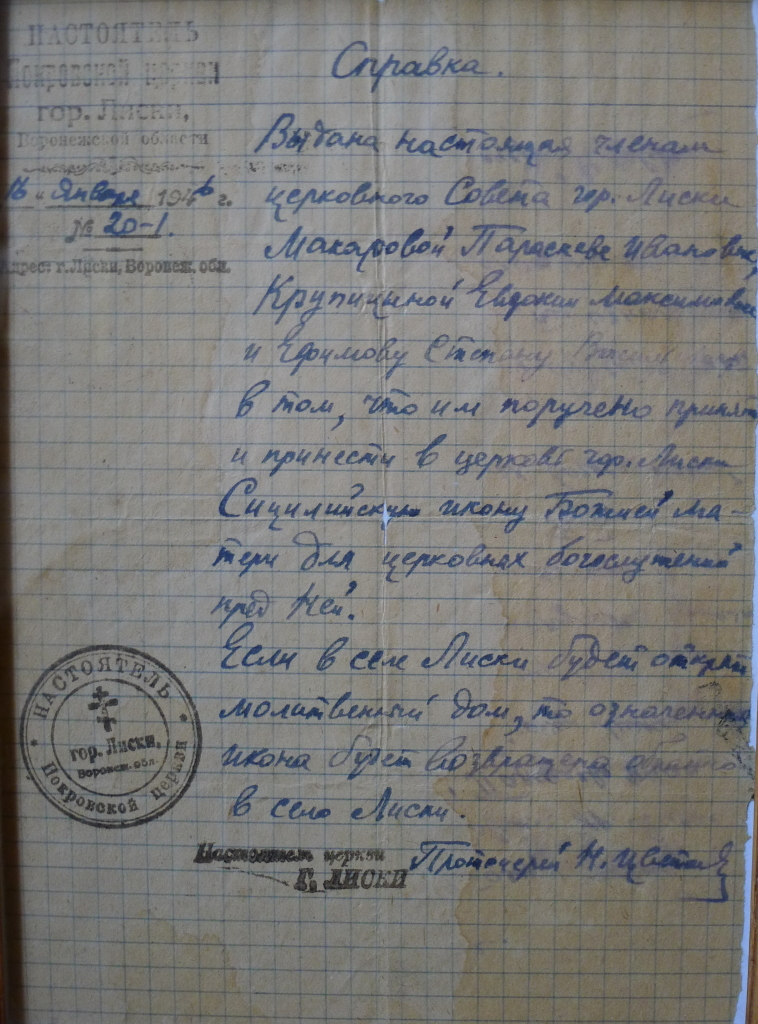 НАСТОЯТЕЛЬ
Покровской церкви
гор. Лиски,
Воронежской области
16 „ Января 1946 г.
№ 20-1.
Адрес: г. Лиски, Воронеж. обл.
Справка.
Выдана настоящая членам
церковного Совета гор. Лиски
Макаровой Параскеве Ивановне,
Крупицыной Евдокии Максимовне
и Ефимову Степану
в том, что им поручено принять
и принести в церковь гор. Лиски
Сицилийскую икону Божией Ма-
тери для церковных богослужений
пред Ней.
Если в селе Лиски будет открыт
молитвенный дом, то означенная
икона будет возвращена обратно
в село Лиски.
НАСТОЯТЕЛЬ
гор. Лиски,
Воронеж. обл.
Покровской церкви
Настоятель церкви
Г. ЛИСКИ
Протоиерей Н.